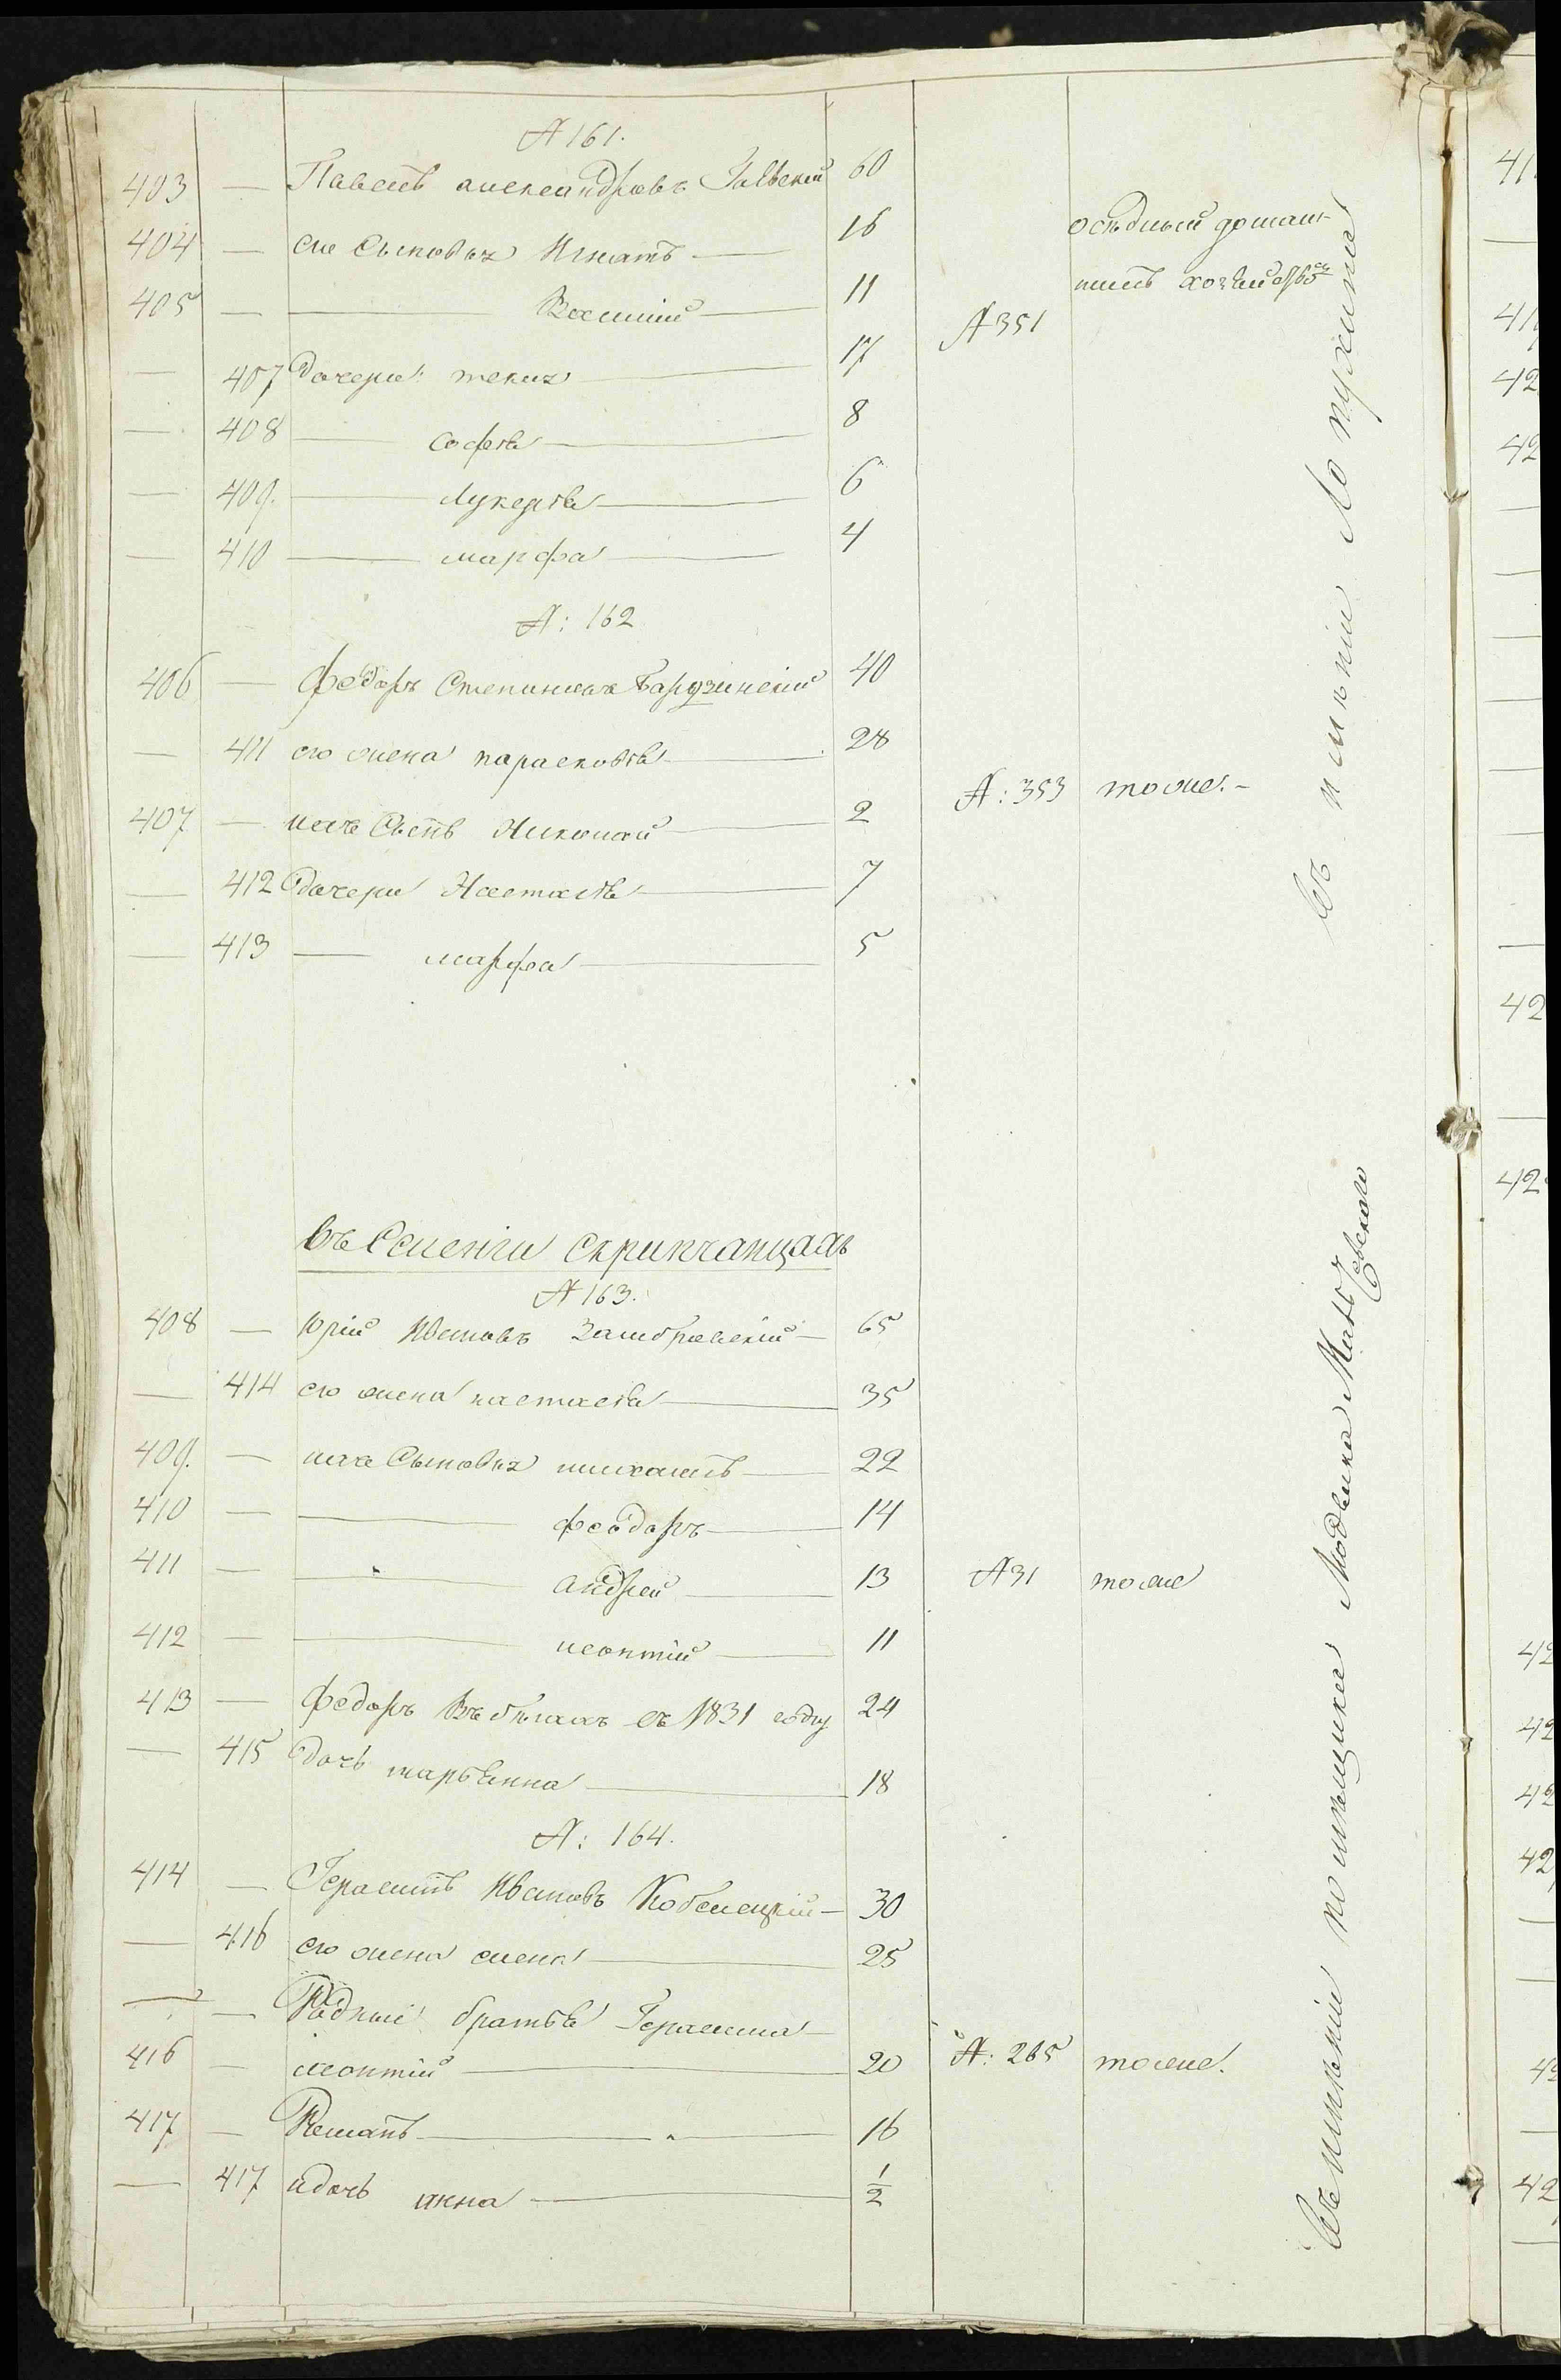 № 161.
403 — Павелъ александровъ 60
404 — его Сыновья Игнатъ — 16 осѣдлый домаш-
405 — Василій — 11 нимъ хозяйствомъ
— 407 Дочери: текля — 17 № 351
— 408 — софья — 8
— 409. — лукерья — 6
— 410 — марфа — 4
№: 162
406 — федоръ Степановъ 40
— 411 его жена парасковья — 28
407 — ихъ Сынъ Николай — 2 №: 353 тоже. -
— 412 Дочери Настасья — 7
— 413 — марфа — 5
въ Селеніи скрипчанцахъ
№ 163.
408 — Юрій Ивановъ — 65
— 414 его жена настасья — 35
409. — ихъ Сыновья михаилъ — 22
410 — феодоръ — 14
411 — андрей — 13 № 31 тоже
412 — леонтій — 11
413 — федоръ Въ бѣгахъ съ 1831 году 24
— 415 дочь марьянна — 18
№: 164.
414 — Герасимъ Ивановъ — 30
— 416 его жена елена — 25
— — Родные братья Герасима —
416 — леонтій — 20 №: 265 тоже.
417 — Романъ — 16
— 417 и дочь анна — 1/2
въ имѣніи Лопухина
Въ имѣніи помѣщика Людвика